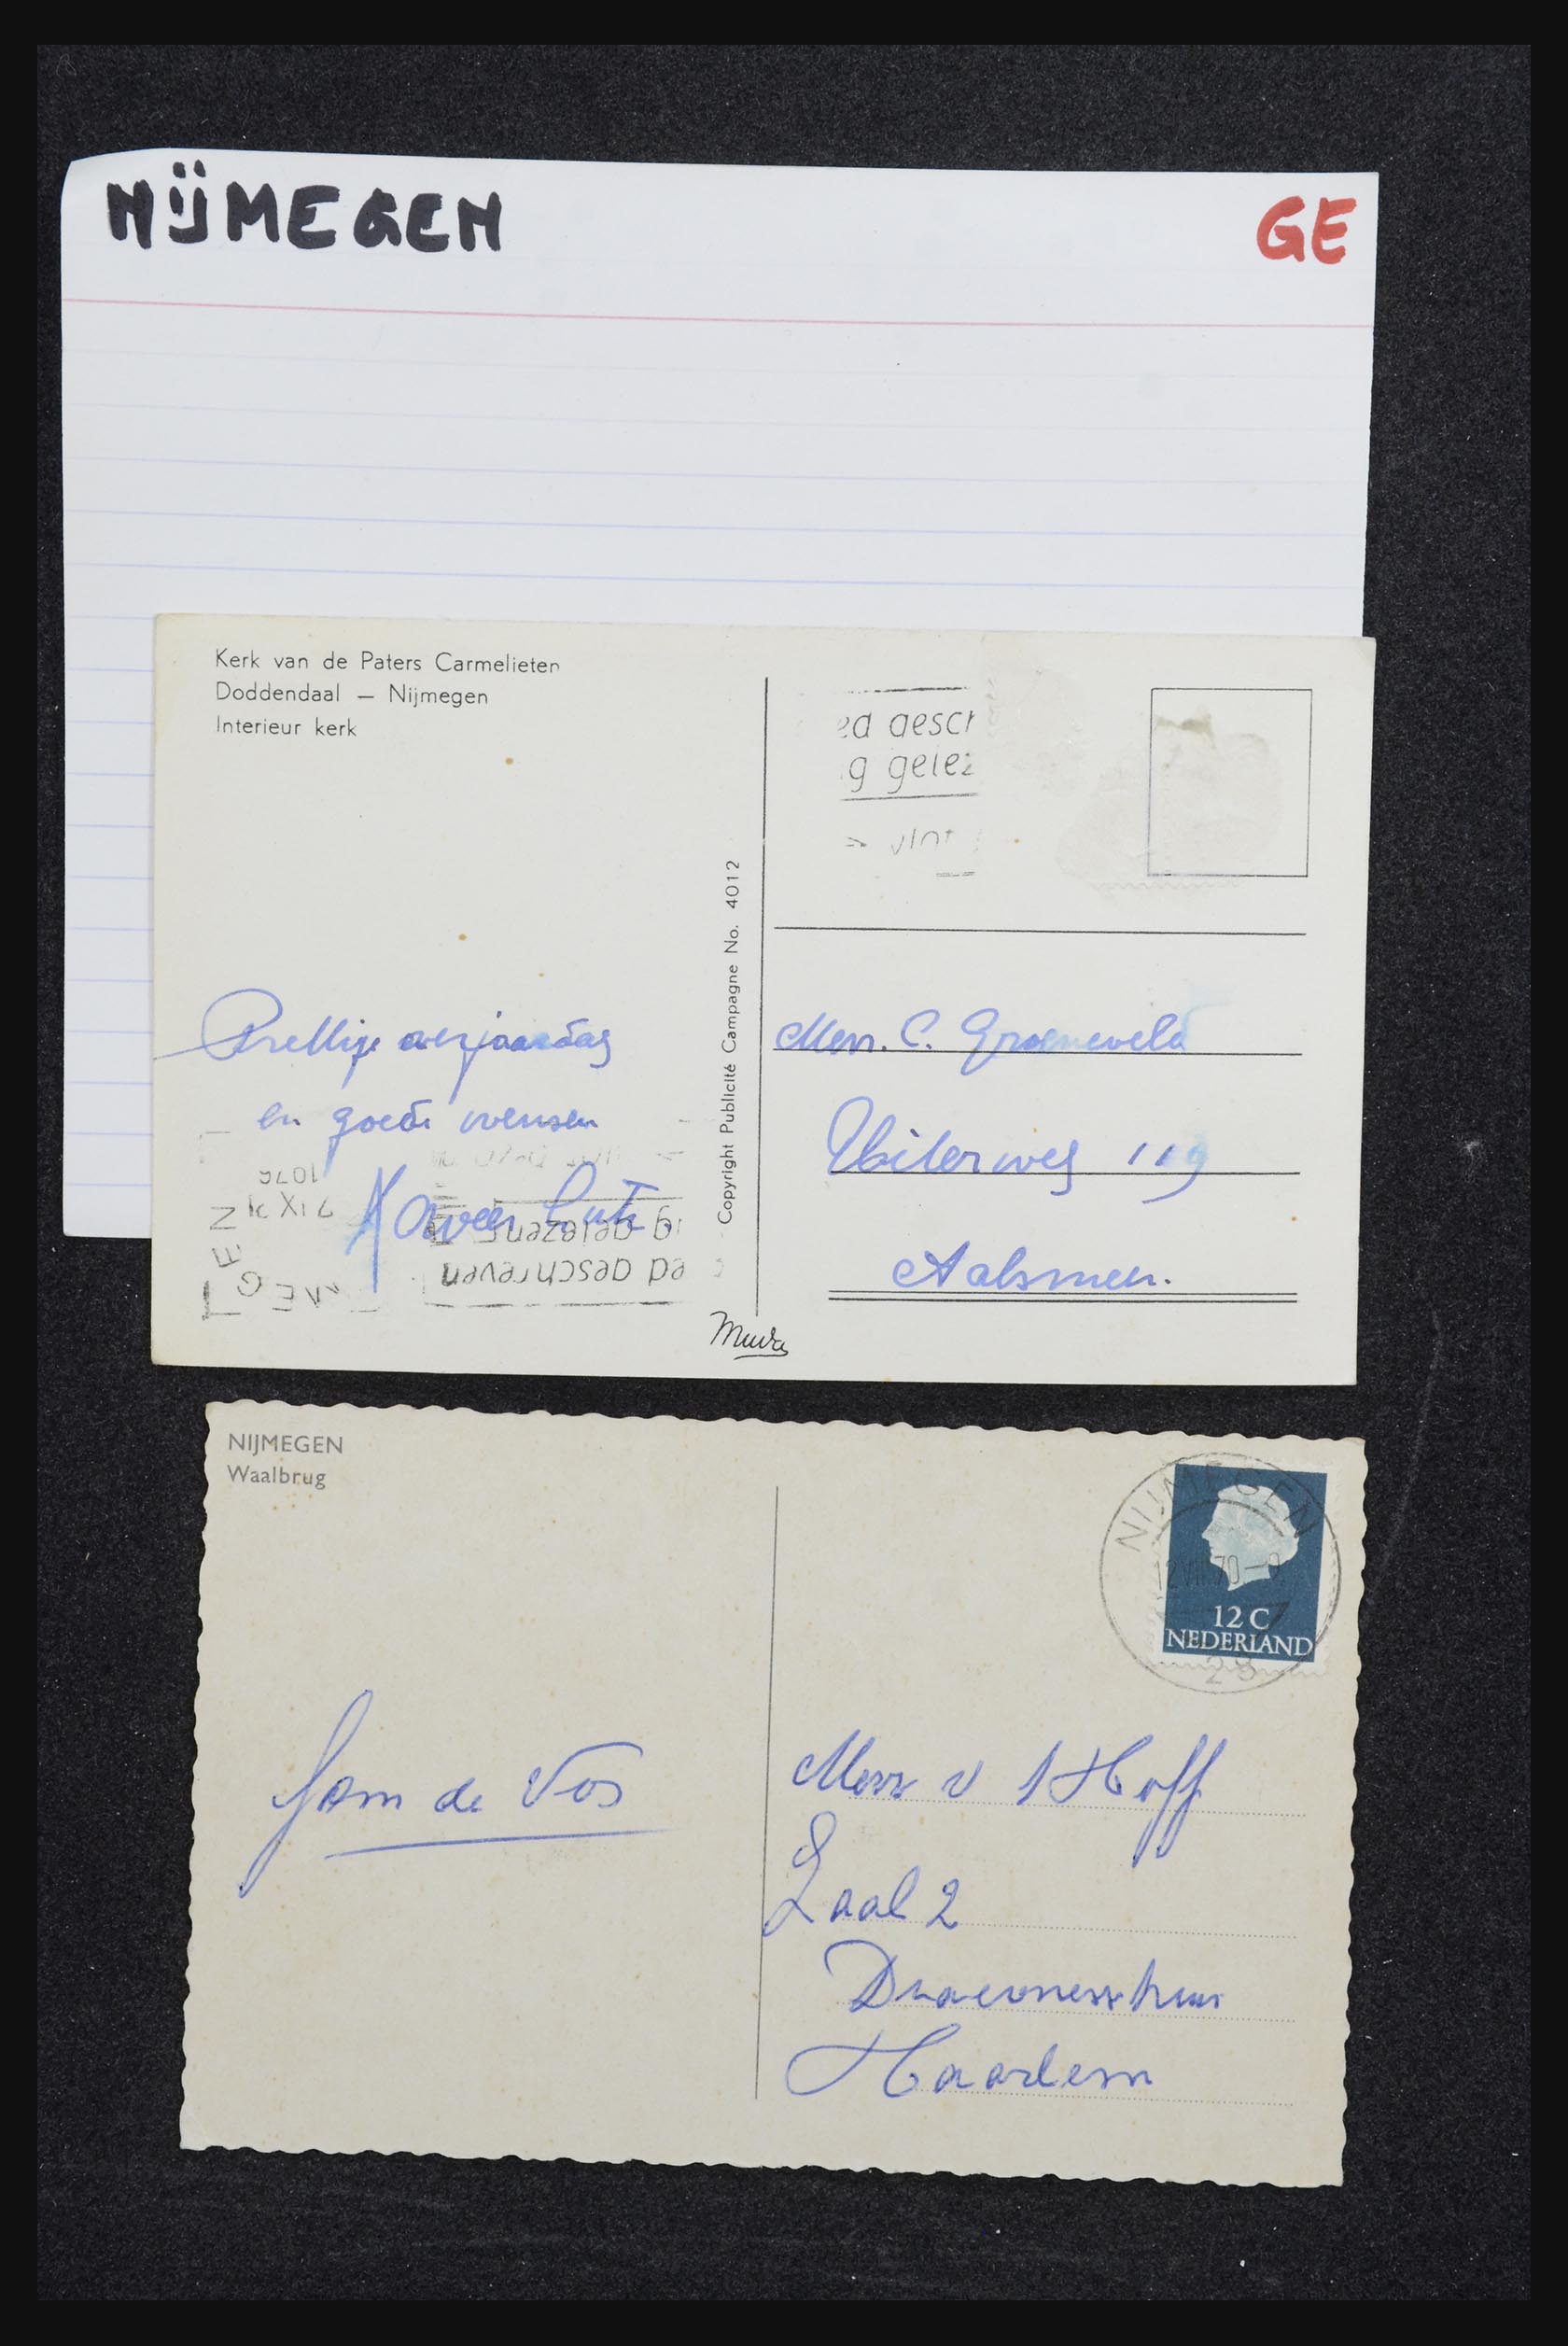 NIJMEGEN
GE
Kerk van de Paters Carmelieten
Doddendaal — Nijmegen
Interieur kerk
ed gesch
g gelez
vlot
Copyright Publicité Campagne No. 4012
Prettige verjaardag
en goede wensen
Mevr. C. Groeneveld
Uiterweg 119
Aalsmeer.
ed geschreven
ig gelezen
MEGEN
Muva
NIJMEGEN
Waalbrug
NIJMEGEN
70
28
12 C
NEDERLAND
Fam de Vos
Mevr v 't Hoff
Zaal 2
Diaconessenhuis
Haarlem